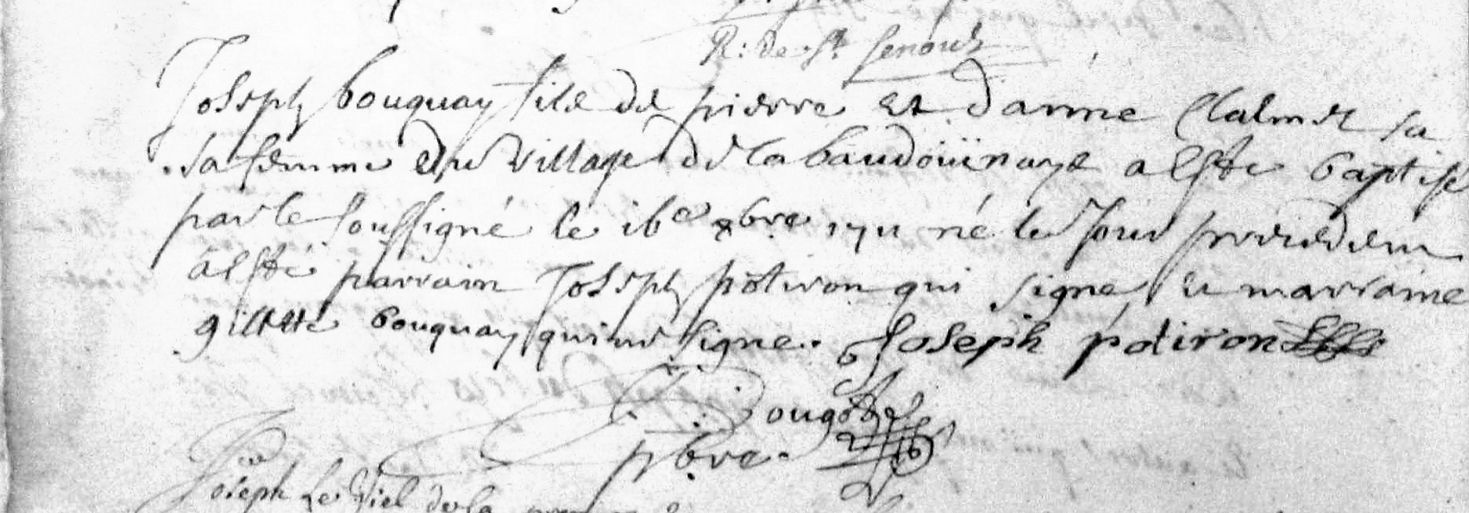 R: de St Senoux
Joseph bouquay fils de pierre et danne Clalmet sa
sa femme du village de la baudoüinaye a esté baptisé
par le soussigné le 16e xbre 1711 né le jour precedent
a esté parrain Joseph potiron qui signe et marraine
gillette bouquay qui ne signe. Joseph potiron
pbre.
Joseph Le Viel de la